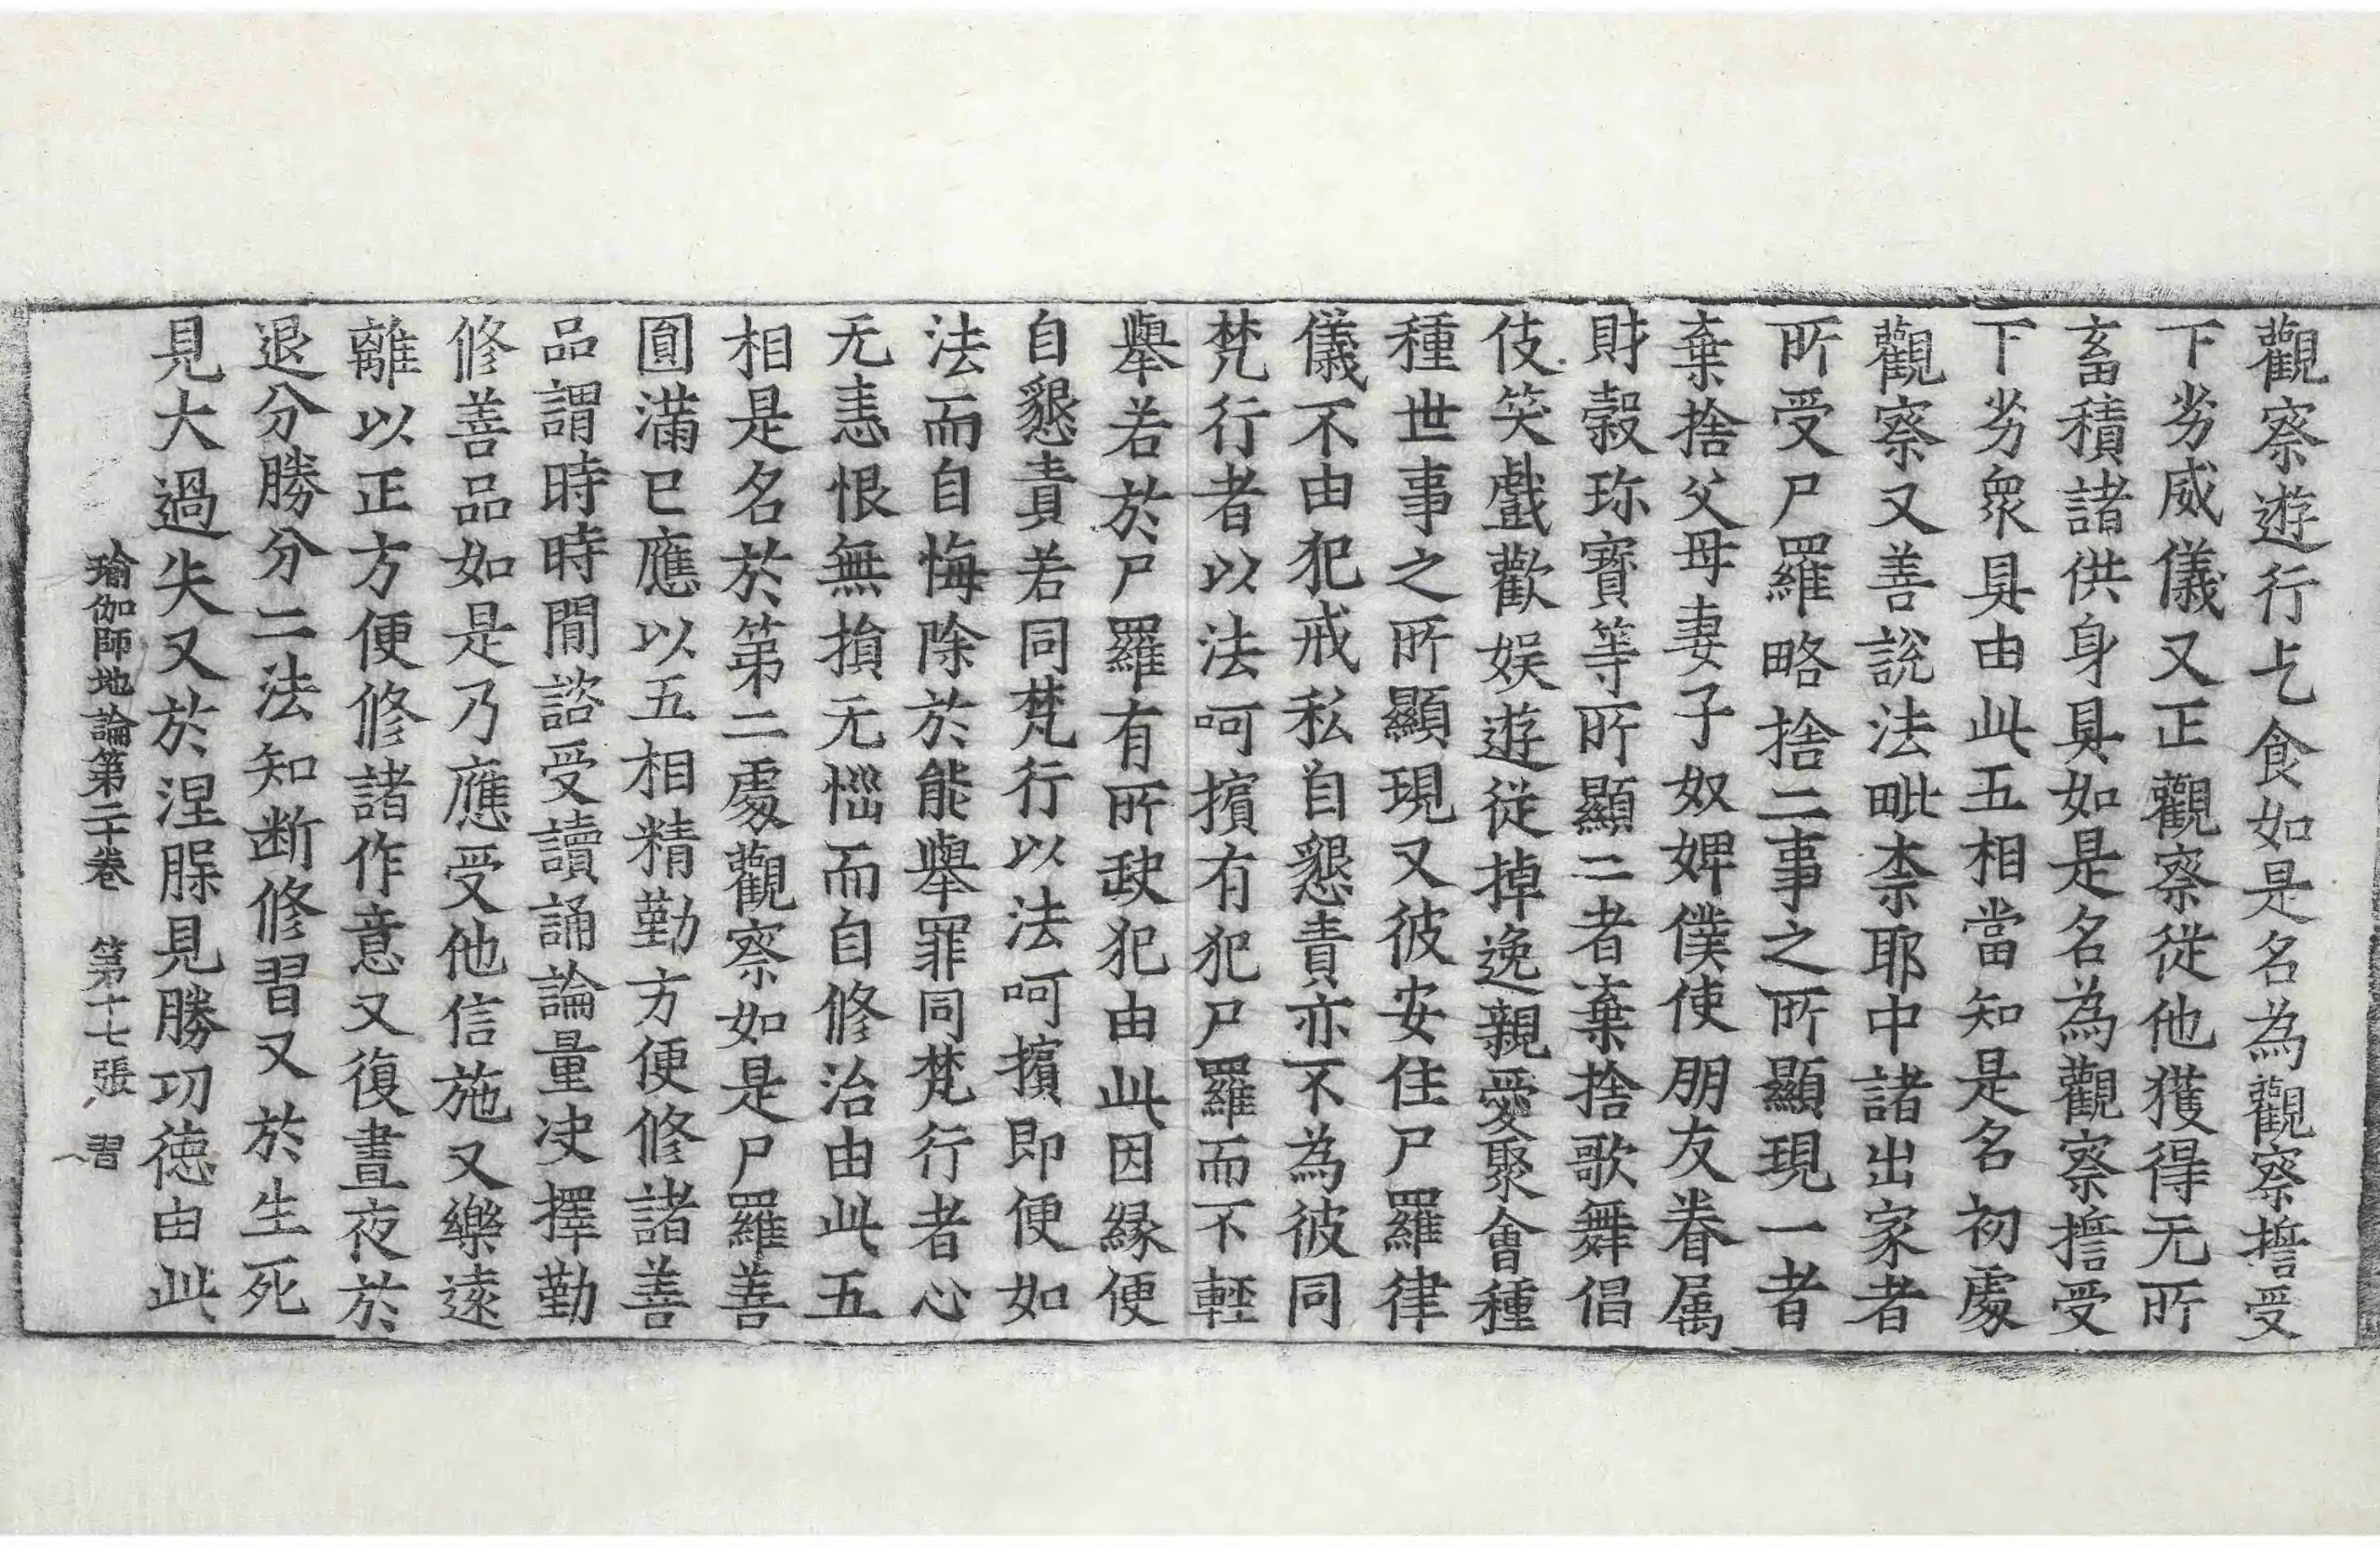 觀察遊行乞食如是名為觀察擔受
下劣威儀又正觀察從他獲得无所
畜積諸供身具如是名為觀察擔受
下劣衆具由此五相當知是名初處
觀察又善說法毗柰耶中諸出家者
所受尸羅略捨二事之所顯現一者
棄捨父母妻子奴婢僕使朋友眷属
財穀珎寶等所顯二者棄捨歌舞倡
伎笑戲歡娱遊從掉逸親愛聚會種
種世事之所顯現又彼安住尸羅律
儀不由犯戒私自懇責亦不為彼同
梵行者以法呵擯有犯尸羅而不輕
舉若於尸羅有所缺犯由此因緣便
自懇責若同梵行以法呵擯即便如
法而自悔除於能舉罪同梵行者心
无恚恨無損无惱而自修治由此五
相是名於第二處觀察如是尸羅善
圓滿已應以五相精勤方便修諸善
品謂時時閒諮受讀誦論量决擇勤
修善品如是乃應受他信施又樂遠
離以正方便修諸作意又復晝夜於
退分勝分二法知断修習又於生死
見大過失又於涅槃見勝功德由此
瑜伽師地論第二十卷　第十七張　習